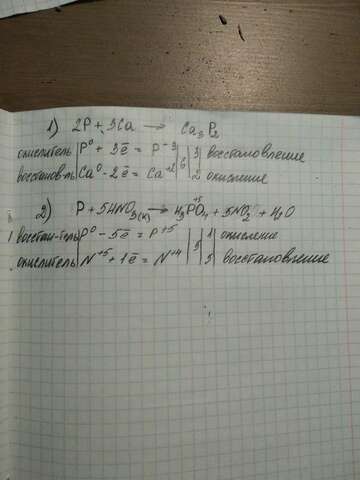 1) 2P + 3Ca → Ca₃P₂
окислитель | P⁰ + 3ē = P⁻³ | 6 | 3 | восстановление
восстанов-ль | Ca⁰ - 2ē = Ca⁺² | 2 окисление
2) P + 5HNO₃(к) → H₃PO₄ + 5NO₂ + H₂O
+5
восстан-тель | P⁰ - 5ē = P⁺⁵ | 5 | 1 | окисление
окислитель | N⁺⁵ + 1ē = N⁺⁴ | 5 | восстановление